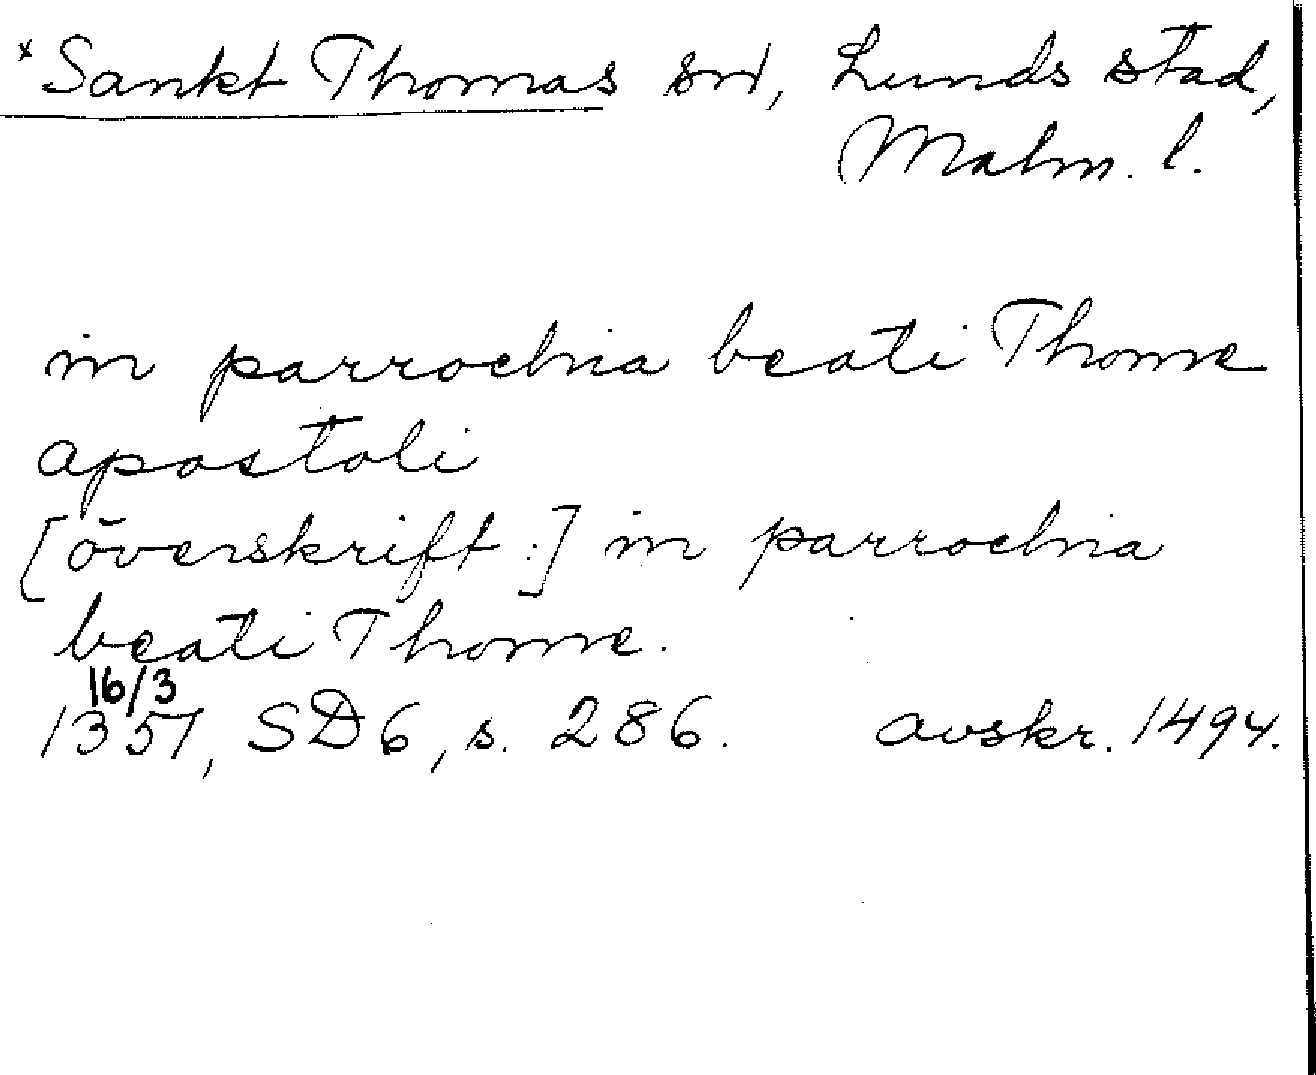 *Sankt Thomas sn, Lunds stad,
Malm. l.
in parrochia beati Thome
apostoli
[överskrift:] in parrochia
beati Thome.
16/3
1357, SD 6, s. 286. avskr. 1494.